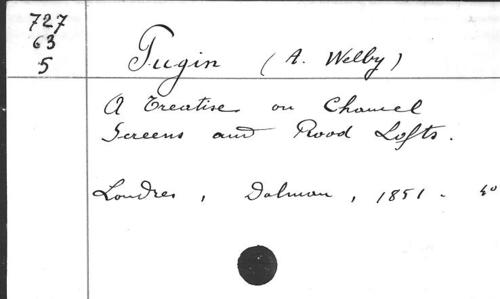 727
63
5
Pugin (A. Welby)
A Treatise on Chancel
Screens and Rood Lofts.
Londres, Dolman, 1851. 4°